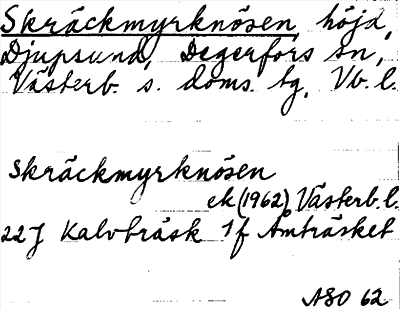 Skräckmyrknösen, höjd,
Djupsund, Degerfors sn,
Västerb. s. doms. tg, Vb. l.
Skräckmyrknösen
ek (1962), Västerb. l.
22J Kalvträsk 1f Åmträsket
ASO 62